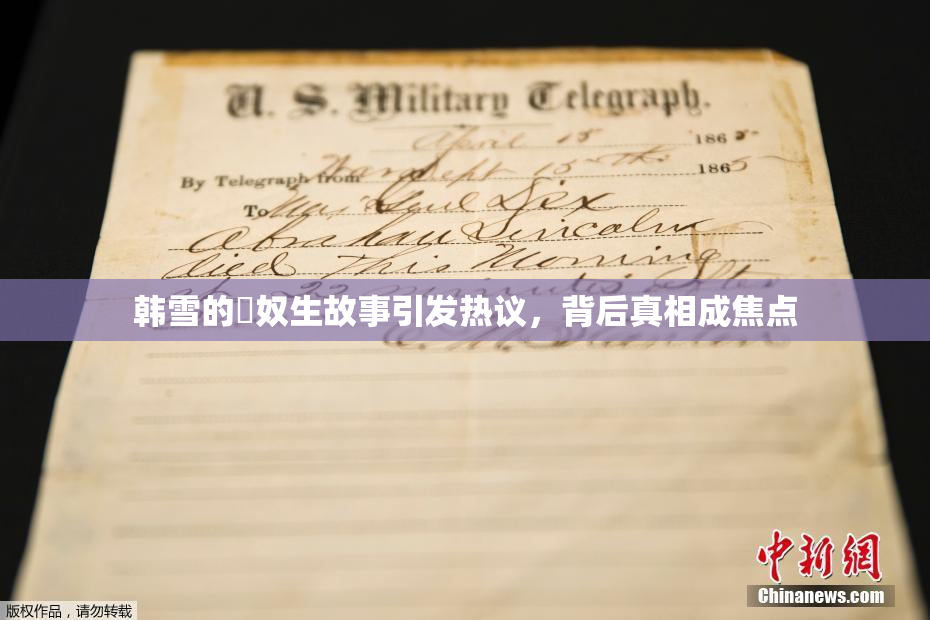 U. S. Military Telegraph.
April 15 1865
By Telegraph from War Dept 15th 1865
To Maj Genl Dix
Abraham Lincoln
died This Morning
22 minutes after
韩雪的奴生故事引发热议，背后真相成焦点
E. M. Stanton
中新网
Chinanews.com
版权作品，请勿转载